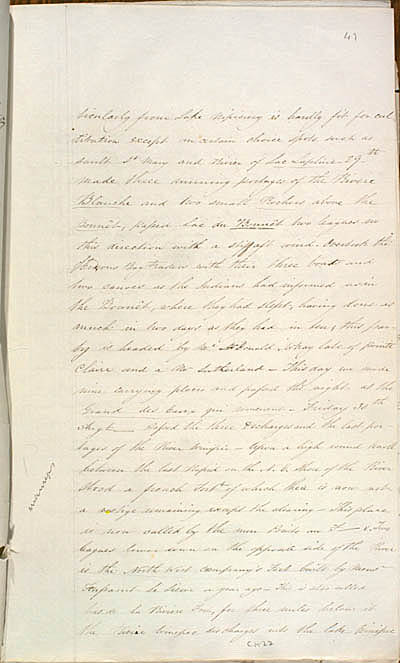 41
ticularly from Lake Nipissing is hardly fit for cul
tivation except in certain choice spots such as
Sault St. Mary and River of Lac Lapluie - 29th
made three running portages of the Rivere
Blanche and two small Rochers above the
Bonnet, passed Lac du Bonnét two leagues in
this direction with a stiff aft wind. Overtook the
Hudsons Bay Traders with their three boats and
two canoes as the Indians had informed us in
the Bonnét, where they had slept, having done as
much in two days as they had in ten, this par
ty is headed by Mr. McDonald McKay late of pointe
Claire and a Mr Sutherland - This day we made
nine carrying places and passed the night at the
Grand des Eaux qui remuent - Friday 30th
Augt passed the three Discharges and the last por
tages of the River Winipic - Upon a high round knoll
between the last Rapid on the N. E. shore of the River
stood a french Fort of which there is now not
a vestige remaining except the clearing - This place
is now called by the men Bas de la Rivière & Two
leagues lower down on the opposite side of the River
is the North West Company's Fort built by Monsr
Toussaint Le Sieur a year ago - This is also called
bas de la Riviere Fort, for three miles below it
the River Winipic discharges into the Lake Winipic
C.1022